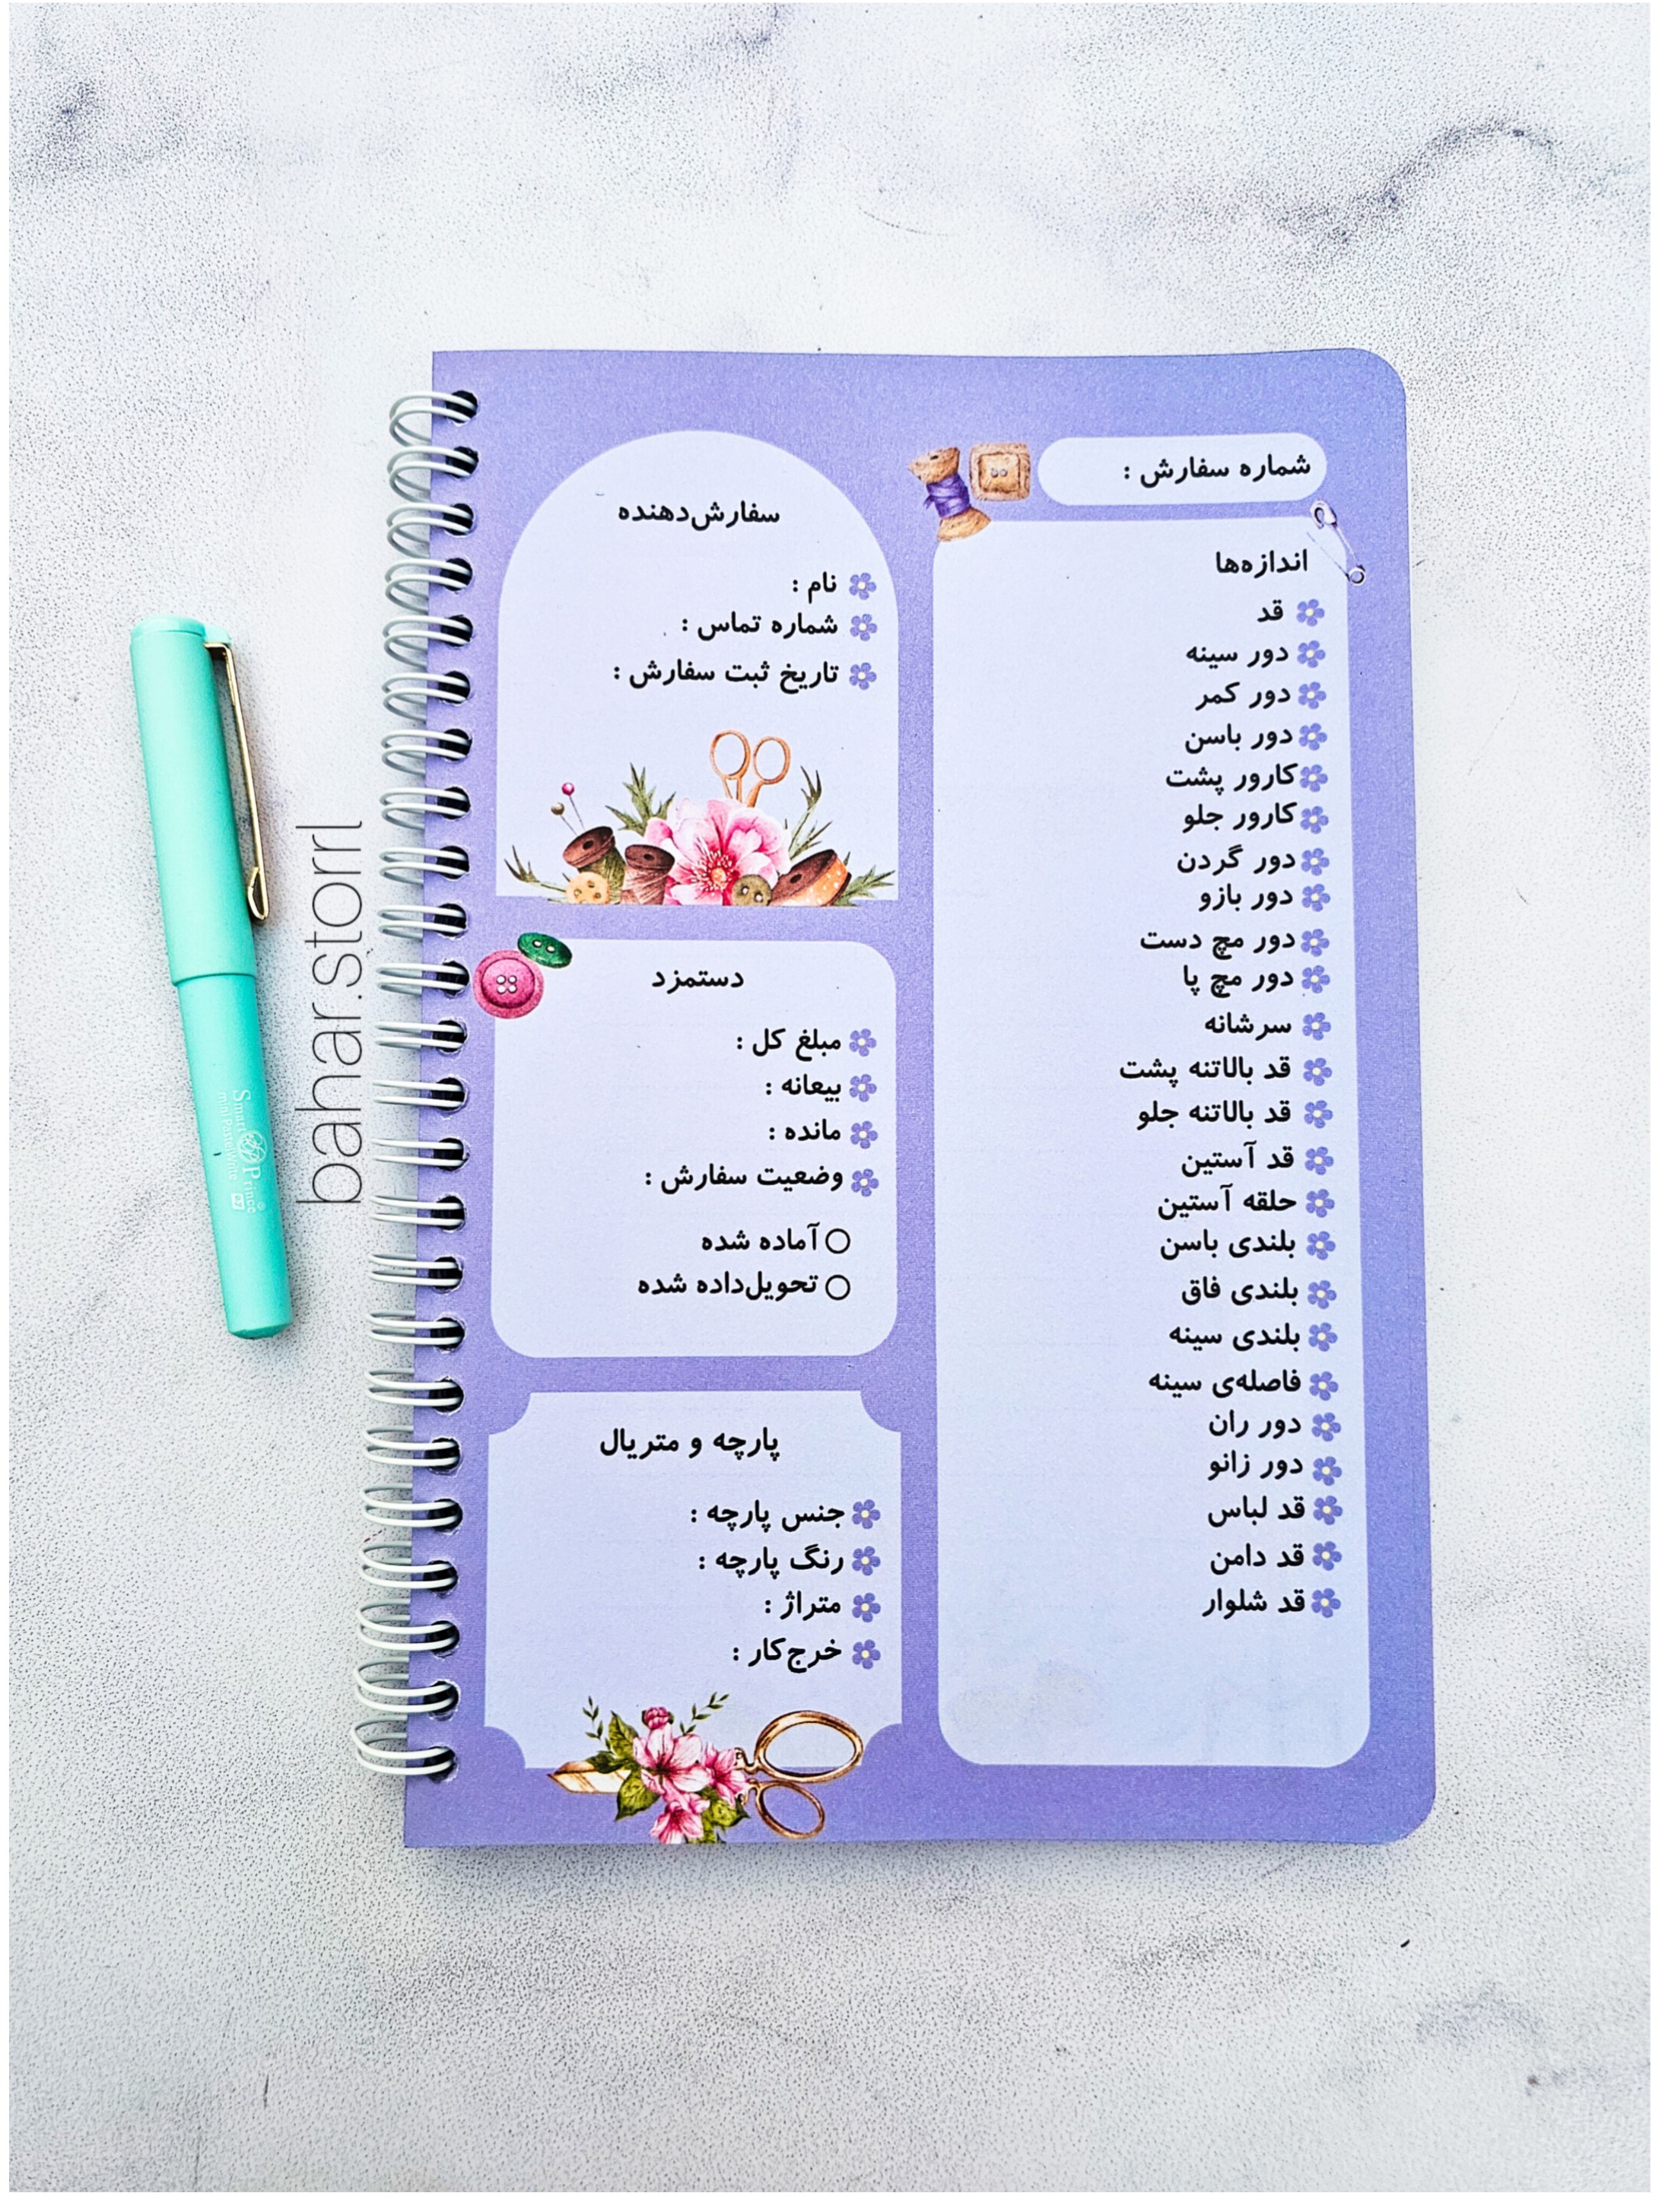 شماره سفارش :
اندازه‌ها
قد
دور سینه
دور کمر
دور باسن
کارور پشت
کارور جلو
دور گردن
دور بازو
دور مچ دست
دور مچ پا
سرشانه
قد بالاتنه پشت
قد بالاتنه جلو
قد آستین
حلقه آستین
بلندی باسن
بلندی فاق
بلندی سینه
فاصله‌ی سینه
دور ران
دور زانو
قد لباس
قد دامن
قد شلوار
سفارش‌دهنده
نام :
شماره تماس :
تاریخ ثبت سفارش :
دستمزد
مبلغ کل :
بیعانه :
مانده :
وضعیت سفارش :
آماده شده
تحویل‌داده شده
پارچه و متریال
جنس پارچه :
رنگ پارچه :
متراژ :
خرج‌کار :
bahar.storrl
Smart Prince
mini Pastel